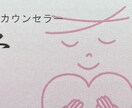 カウンセラー